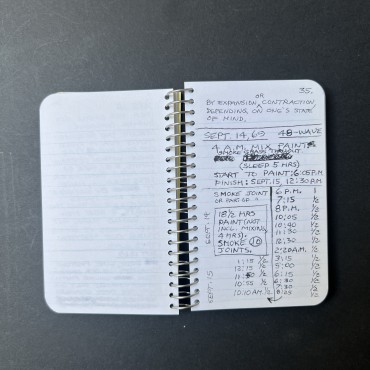 35.
OR
BY EXPANSION, CONTRACTION
DEPENDING ON ONE'S STATE
OF MIND.
SEPT. 14, 69 48-WAVE
4 A.M. MIX PAINT
SMOKE
(SLEEP 5 HRS)
START TO PAINT: 6:05 P.M.
FINISH: SEPT. 15, 12:30 A.M.
SMOKE JOINT
OR
SEPT. 14
18½ HRS
PAINT (NOT
INCL. MIXING
4 HRS).
SMOKE 10
JOINTS.
6 P.M. 1
7:15 ½
8 P.M. ½
10:05 ½
10:40 ½
11:30 ½
12:30 ½
2:20 A.M. ½
3:15 ½
5:00 ½
6:15 ½
½
½
½
SEPT. 15
1:15 ½
½
½
10:55 ½
10:10 A.M. ½